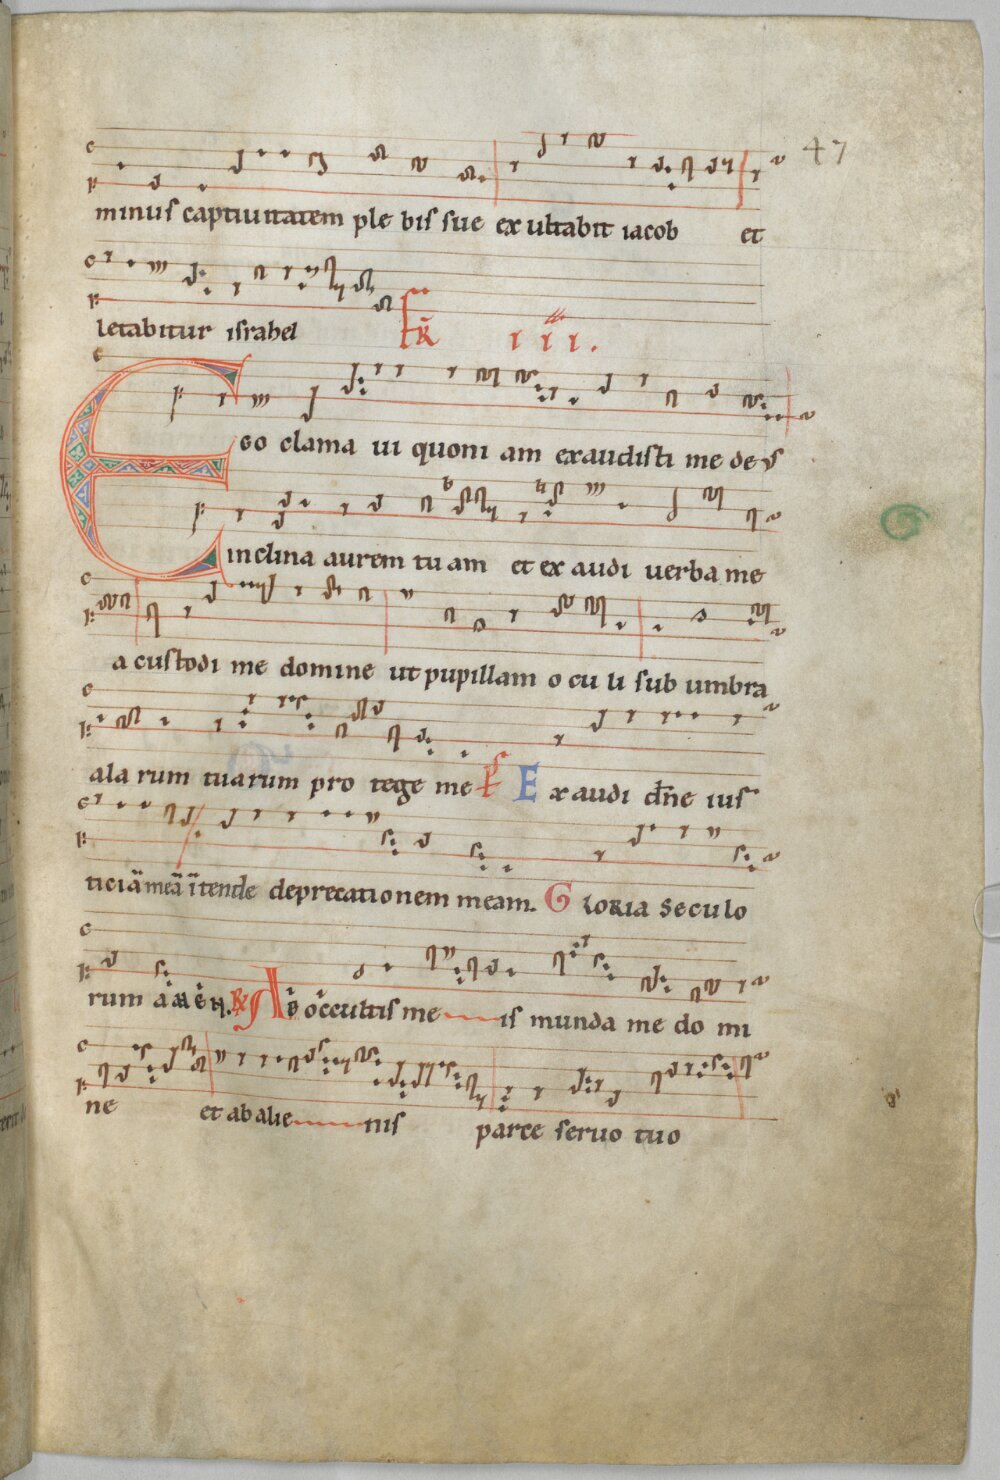 47
minus captiuitatem ple bis sue ex ultabit iacob et
letabitur israhel
Ego clama ui quoni am exaudisti me deus
inclina aurem tu am et ex audi uerba me
a custodi me domine ut pupillam o cu li sub umbra
ala rum tuarum pro tege me Ps Exaudi dn̄e ius
ticiā meā ītende deprecationem meam. Gloria seculo
rum amen. Ab occultis me is munda me do mi
ne et ab alie nis parce seruo tuo